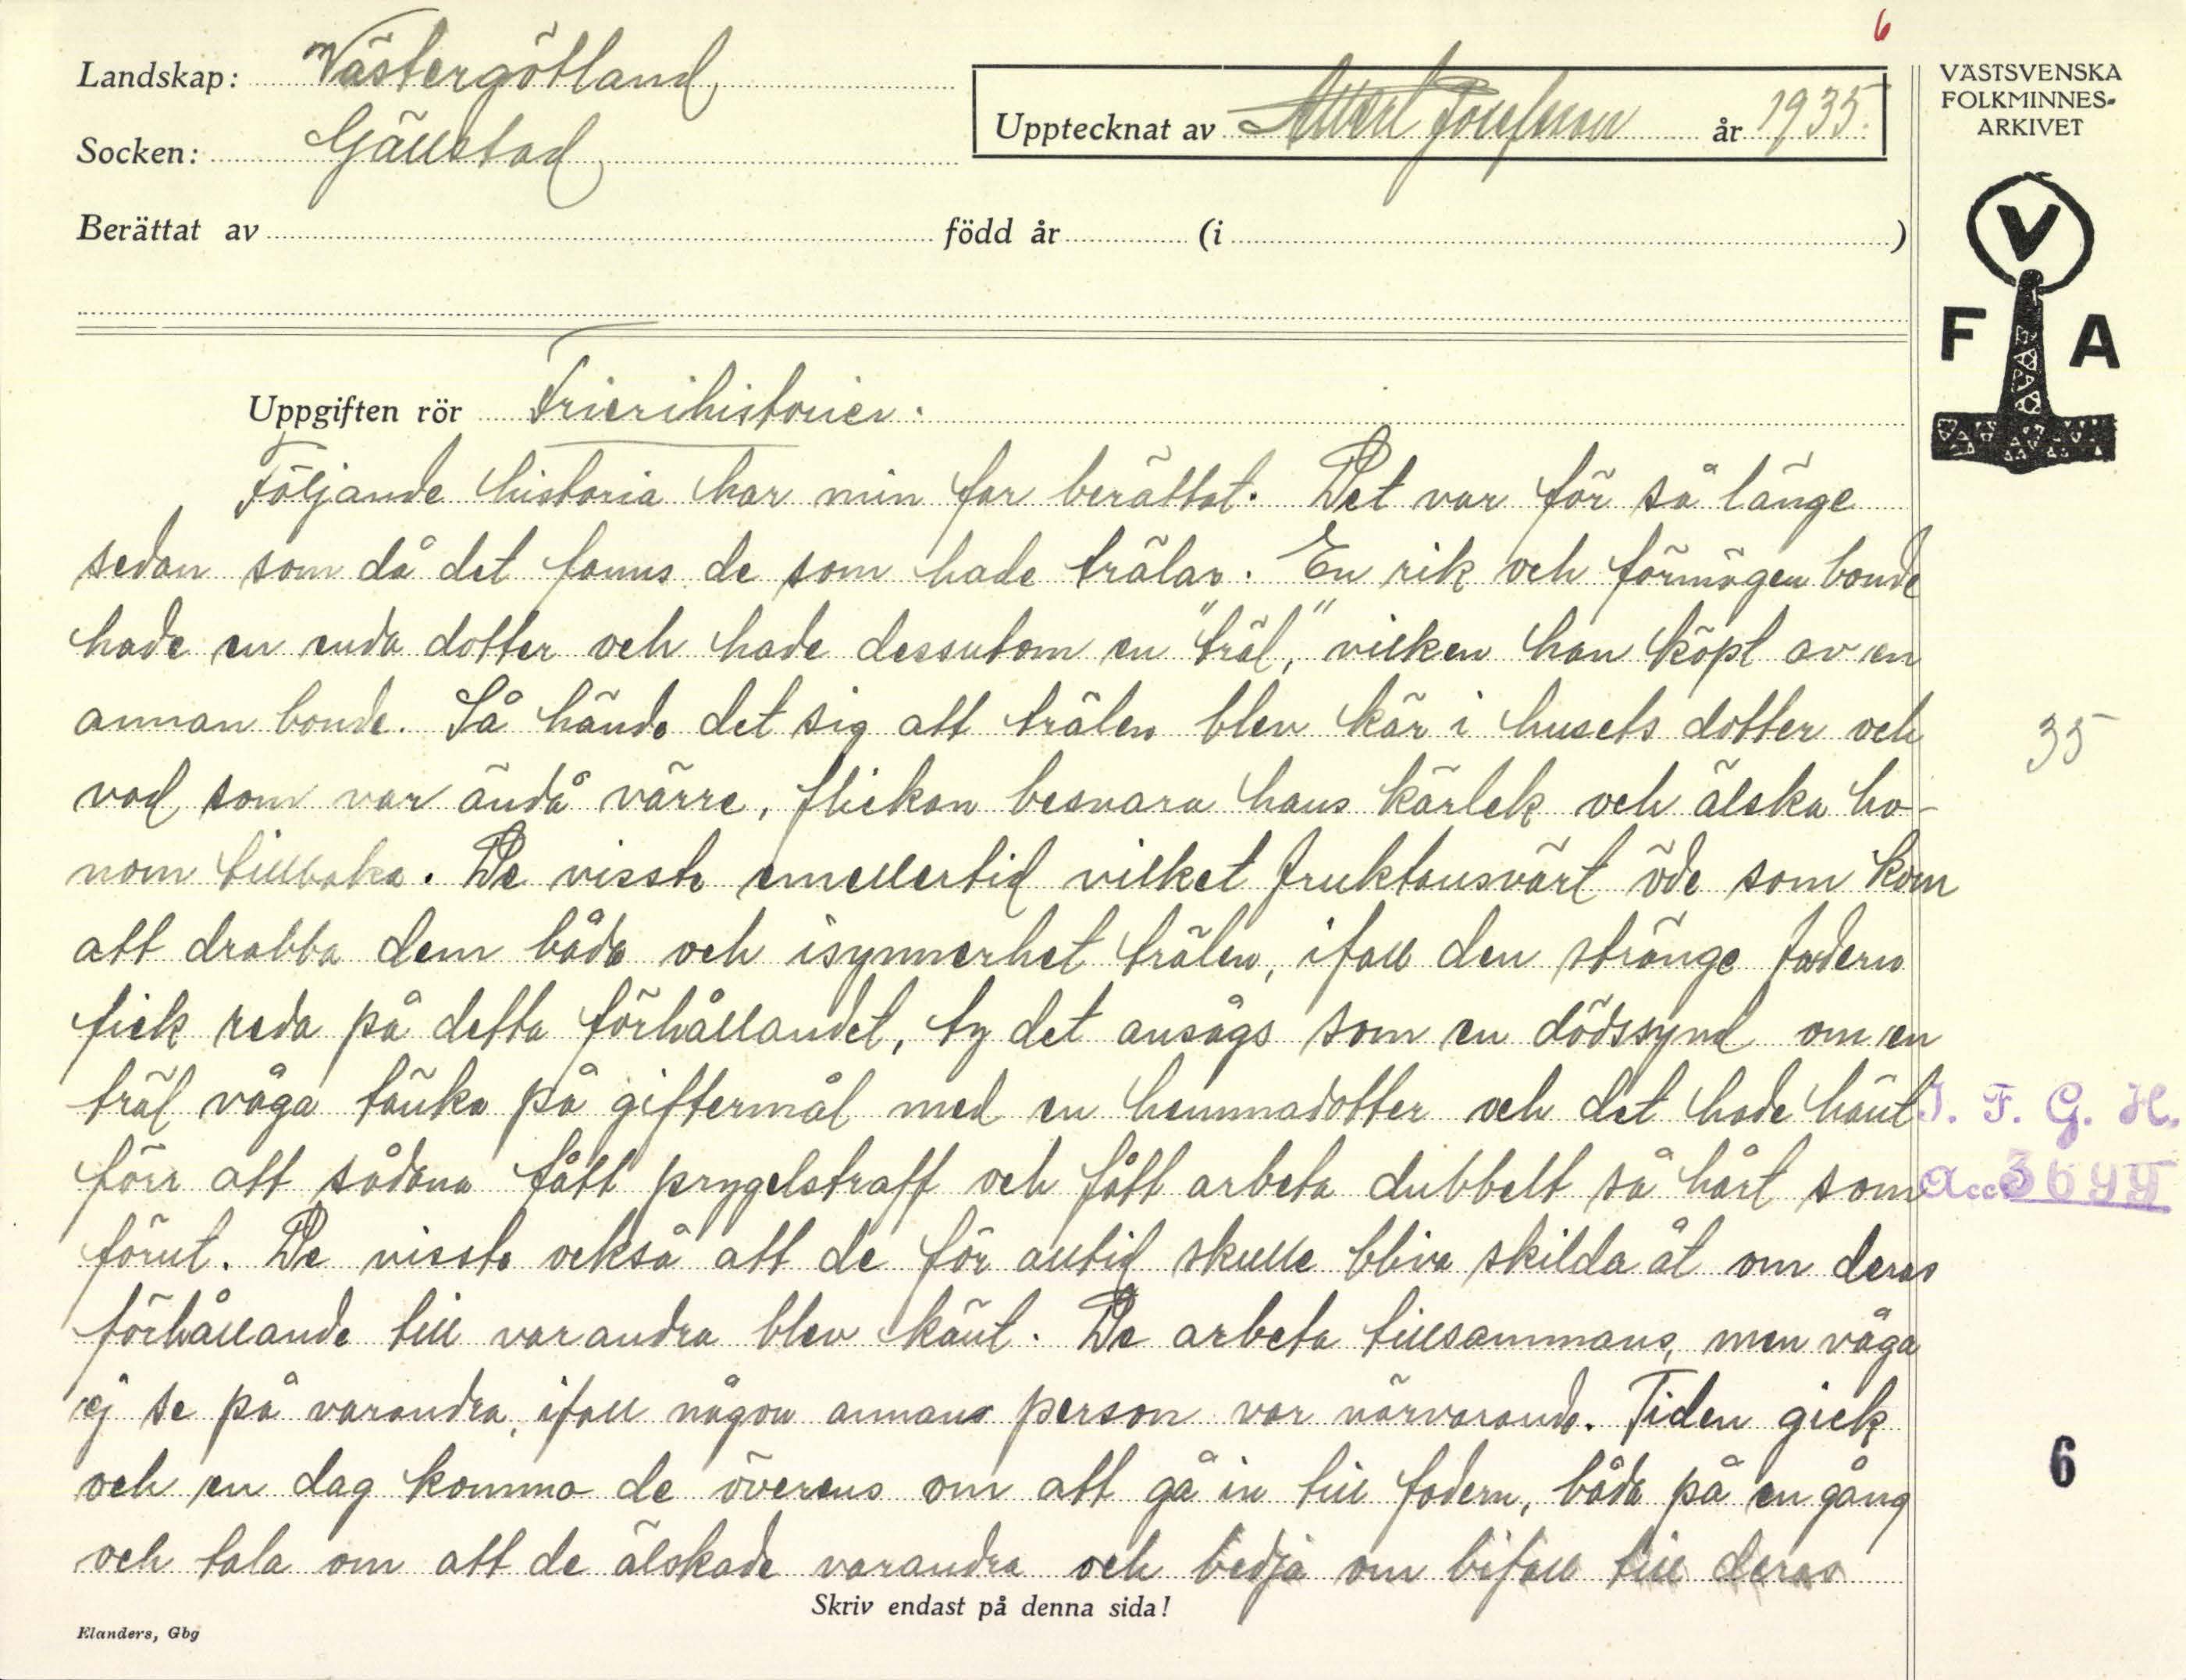 6
Landskap: Västergötland
Socken: Gällstad
Upptecknat av år 1935.
Berättat av född år (i )
VÄSTSVENSKA
FOLKMINNES-
ARKIVET
V
F A
Uppgiften rör Frierihistorier.
Följande historia har min far berättat. Det var för så länge
sedan som då det fanns de som hade trälar. En rik och förmögen bonde
hade en enda dotter och hade dessutom en "träl," vilken han köpt av en
annan bonde. Så hände det sig att trälen blev kär i husets dotter och
vad som var ändå värre, flickan besvara hans kärlek och älska ho-
nom tillbaka. De visste emellertid vilket fruktansvärt öde som kom
att drabba dem båda och isynnerhet trälen, ifall den stränge fadern
fick reda på detta förhållandet, ty det ansågs som en dödssynd om en
träl våga tänka på giftermål med en hemmadotter och det hade hänt
förr att sådana fått prygelstraff och fått arbeta dubbelt så hårt som
förut. De visste också att de för alltid skulle bliva skilda åt om deras
förhållande till varandra blev känt. De arbeta tillsammans, men våga
ej se på varandra, ifall någon annans person var närvarande. Tiden gick
och en dag komma de överens om att gå in till fadern, båda på en gång
och tala om att de älskade varandra och bedja om bifall till deras
35
I. F. G. H.
Acc. 3699
6
Skriv endast på denna sida!
Elanders, Gbg